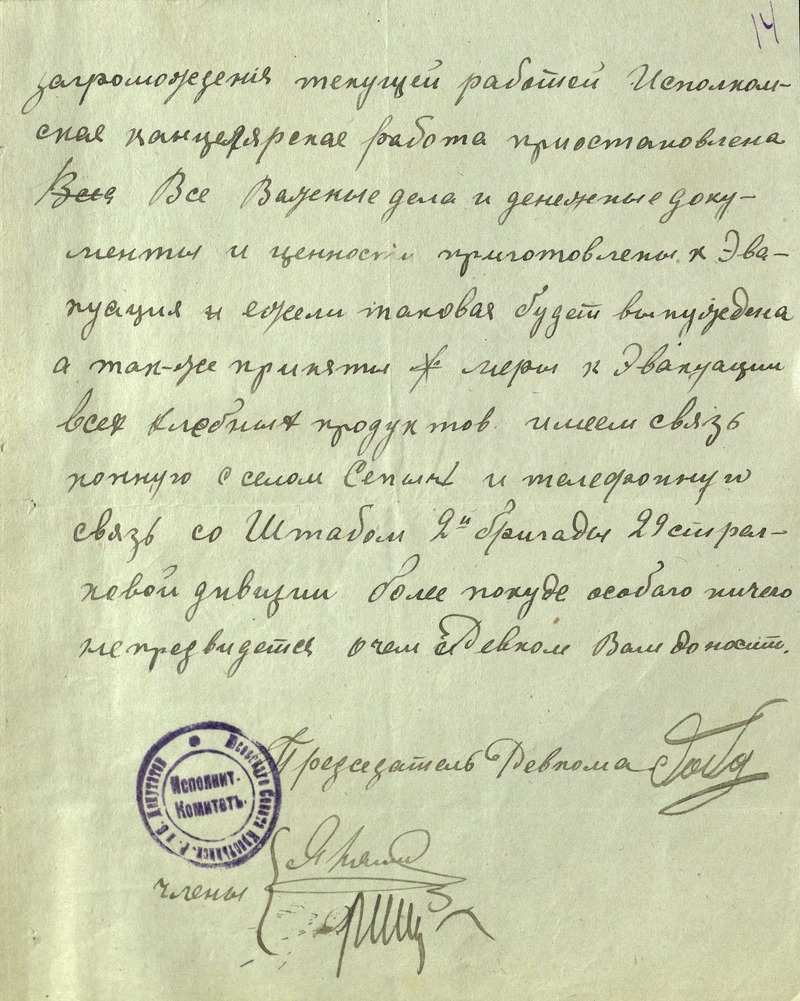 14
загромождения текущей работей Исполком-
ская канцелярская работа приостановлена
Все Важные дела и денежные доку-
менты и ценности приготовлены к Эва-
куация и ежели таковая будет вынуждена
а так-же приняты меры к Эвакуации
всех хлебных продуктов имеем связь
конную с селом Сепыч и телефонную
связь со Штабом 2й бригады 29 стрел-
ковой дивизии более покуде особаго ничего
непредвидется о чем Ревком Вам доносит.
Председатель Ревкома
Исполнит.
Комитетъ.
Совета Крестьянск. Р. и С. Депутатов
члены